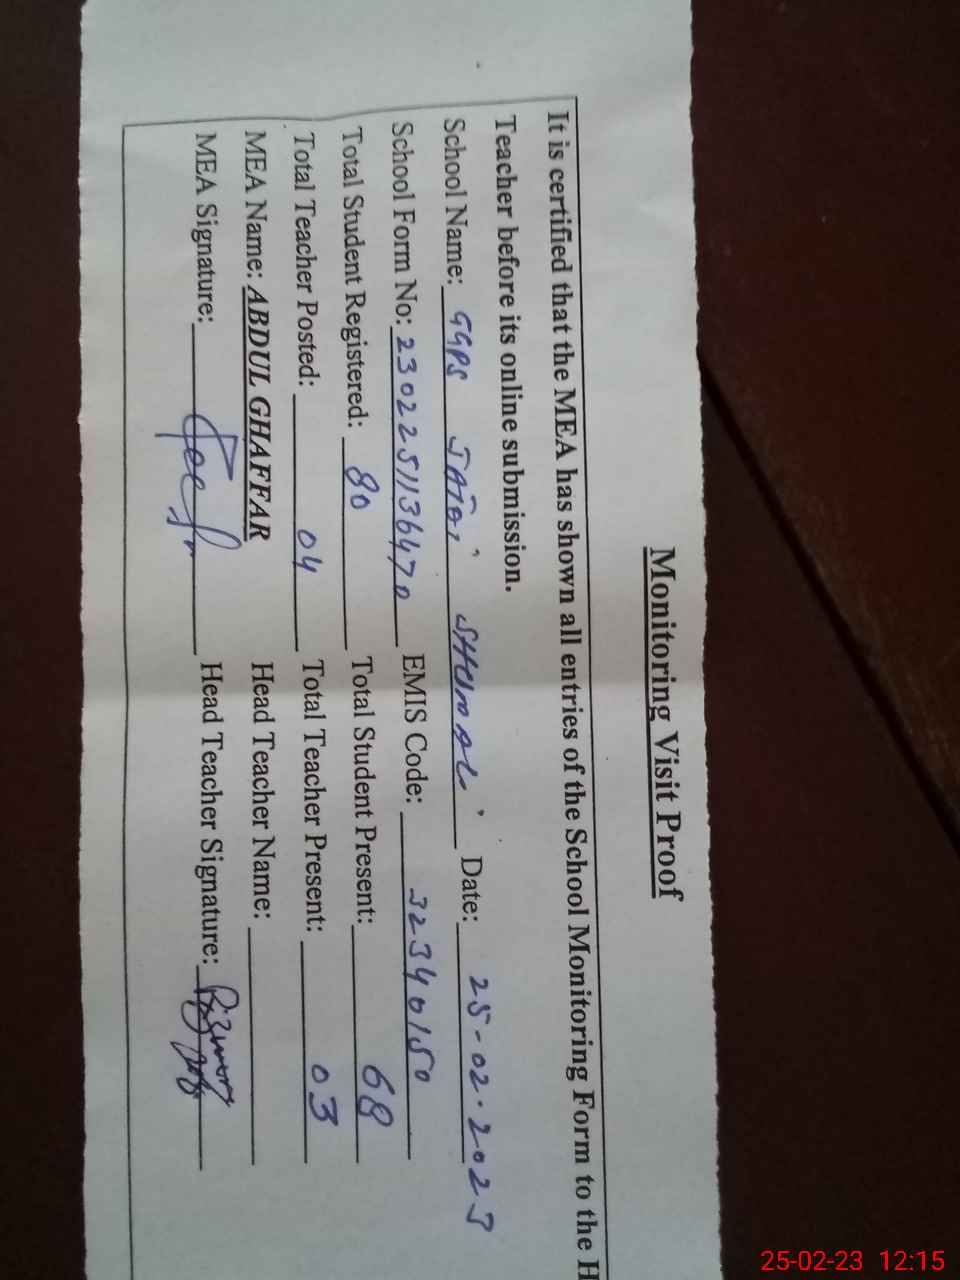 Monitoring Visit Proof
It is certified that the MEA has shown all entries of the School Monitoring Form to the H
Teacher before its online submission.
School Name: GGPS JATOI SHUMALI Date: 25-02-2023
School Form No: 2302251136470 EMIS Code: 32340150
Total Student Registered: 80 Total Student Present: 68
Total Teacher Posted: 04 Total Teacher Present: 03
MEA Name: ABDUL GHAFFAR Head Teacher Name:
MEA Signature: Head Teacher Signature:
25-02-23 12:15